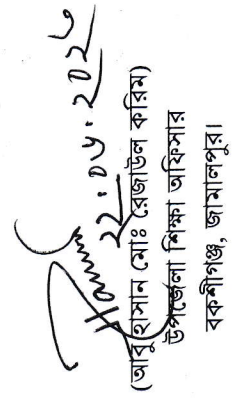 (আবু হাসান মোঃ রেজাউল করিম)
উপজেলা শিক্ষা অফিসার
বকশীগঞ্জ, জামালপুর।